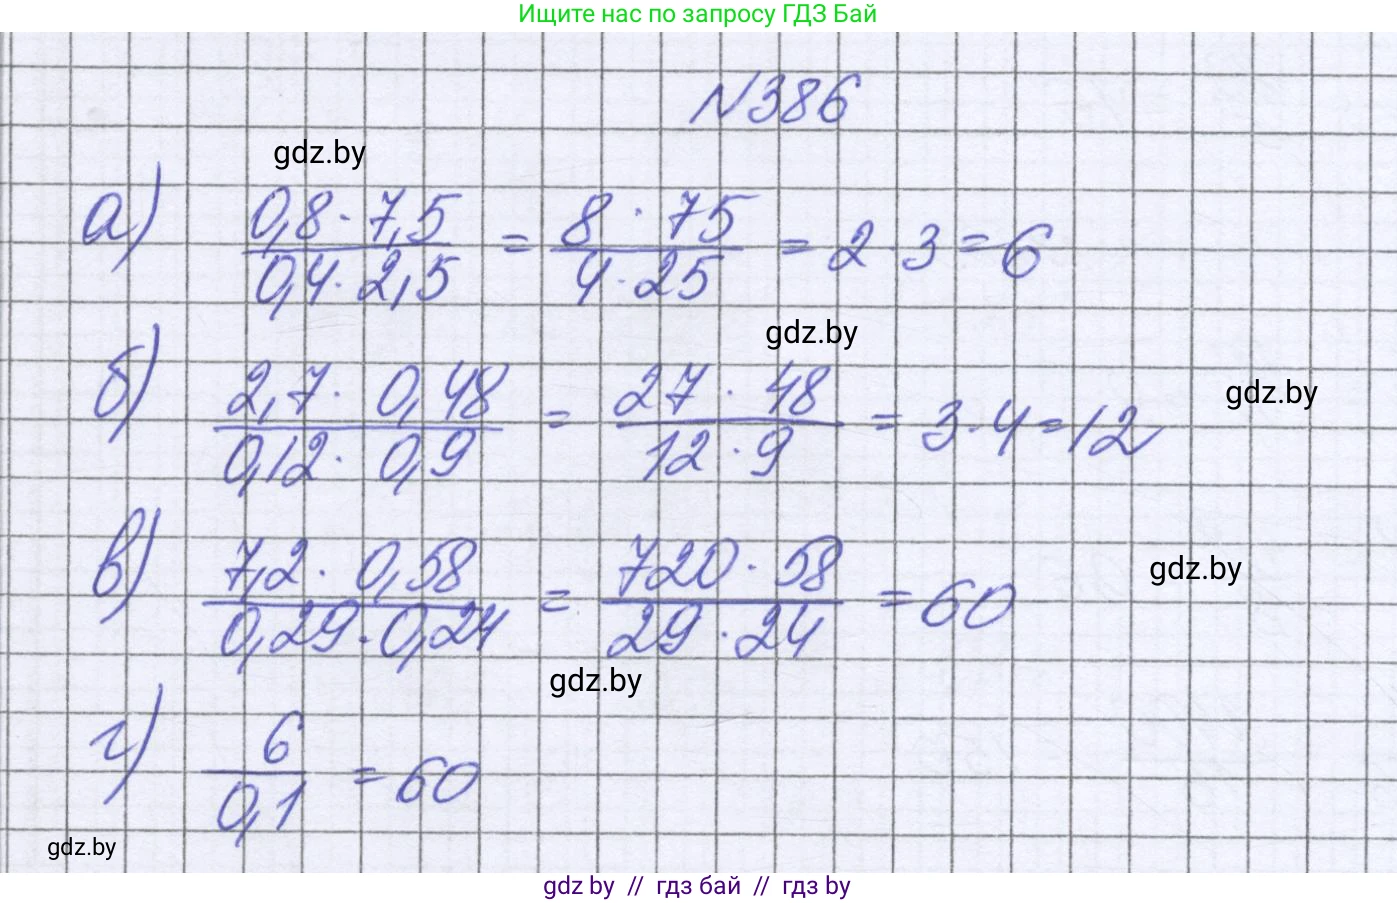 Ищите нас по запросу ГДЗ Бай
N386
gdz.by
а) 0,8 · 7,5 / 0,4 · 2,5 = 8 · 75 / 4 · 25 = 2 · 3 = 6
gdz.by
б) 2,7 · 0,48 / 0,12 · 0,9 = 27 · 48 / 12 · 9 = 3 · 4 = 12
gdz.by
в) 7,2 · 0,58 / 0,29 · 0,24 = 720 · 58 / 29 · 24 = 60
gdz.by
gdz.by
г) 6 / 0,1 = 60
gdz.by
gdz by // гдз бай // гдз by